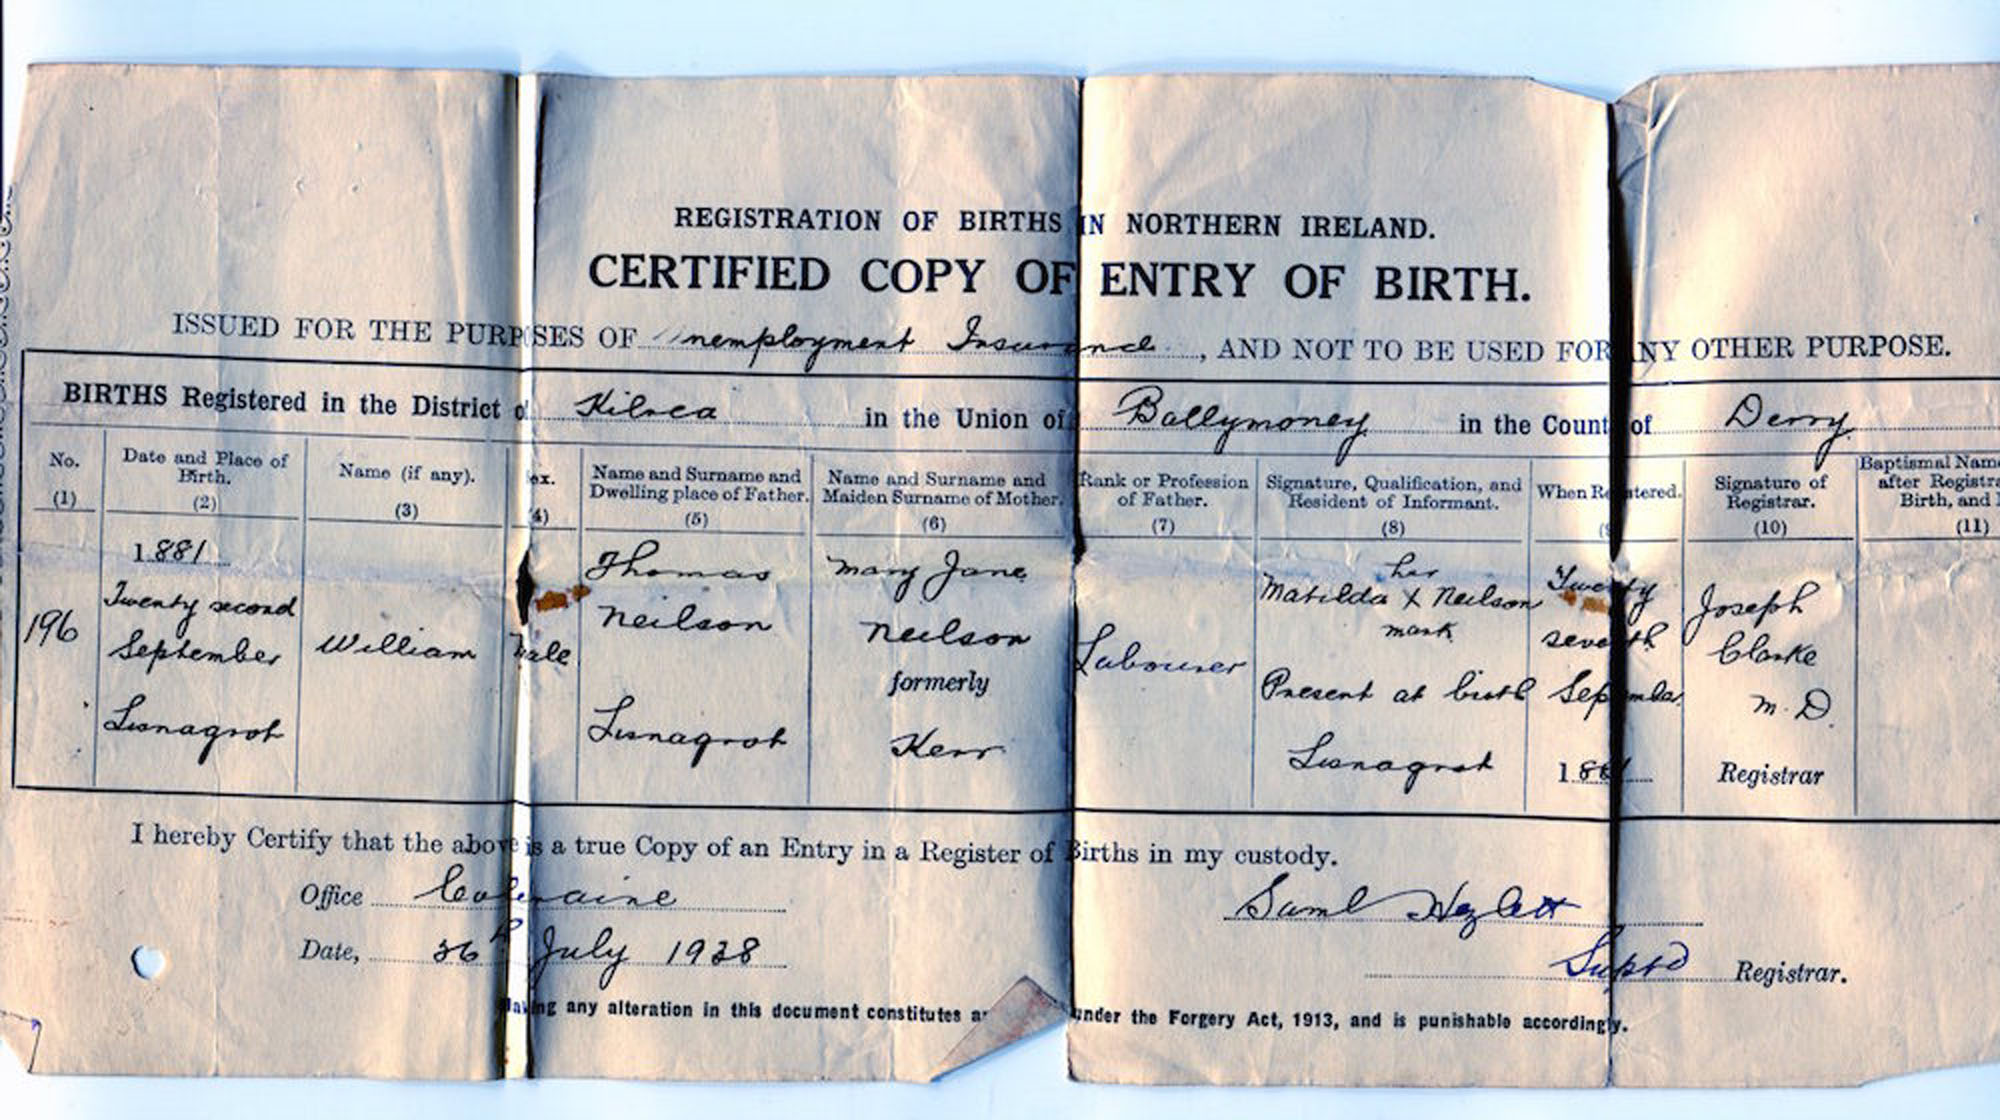 REGISTRATION OF BIRTHS IN NORTHERN IRELAND.
CERTIFIED COPY OF ENTRY OF BIRTH.
ISSUED FOR THE PURPOSES OF Unemployment Insurance, AND NOT TO BE USED FOR ANY OTHER PURPOSE.
BIRTHS Registered in the District of Kilrea in the Union of Ballymoney in the County of Derry
No.
(1)
Date and Place of
Birth.
(2)
Name (if any).
(3)
Sex.
(4)
Name and Surname and
Dwelling place of Father.
(5)
Name and Surname and
Maiden Surname of Mother.
(6)
Rank or Profession
of Father.
(7)
Signature, Qualification, and
Resident of Informant.
(8)
When Registered.
(9)
Signature of
Registrar.
(10)
Baptismal Name
after Registra
Birth, and
(11)
196
1881
Twenty second
September
Lisnagrot
William
Male
Thomas
Neilson
Lisnagrot
Mary Jane
Neilson
formerly
Kerr
Labourer
her
Matilda X Neilson
mark
Present at birth
Lisnagrot
Twenty
seventh
September
1881
Joseph
Clarke
M.D.
Registrar
I hereby Certify that the above is a true Copy of an Entry in a Register of Births in my custody.
Office Coleraine
Date, 26th July 1938
Saml Hezlett
Suptd Registrar.
Making any alteration in this document constitutes an under the Forgery Act, 1913, and is punishable accordingly.